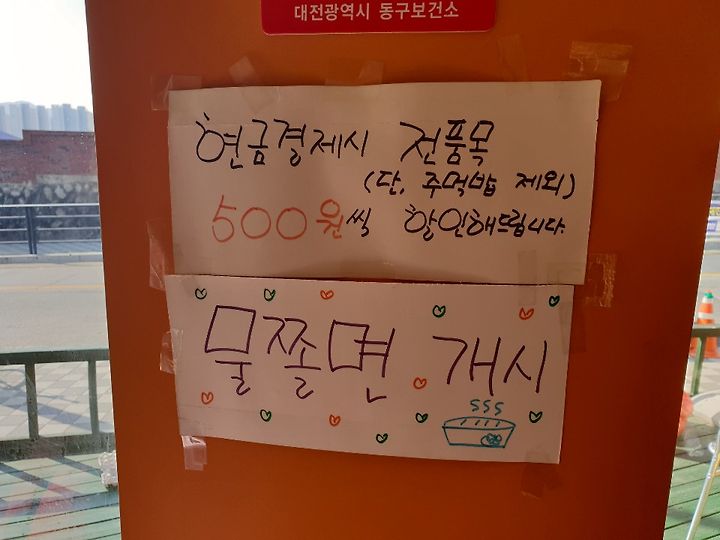 대전광역시 동구보건소
현금결제시 전품목
(단, 주먹밥 제외)
500원씩 할인해드립니다.
물쫄면 개시